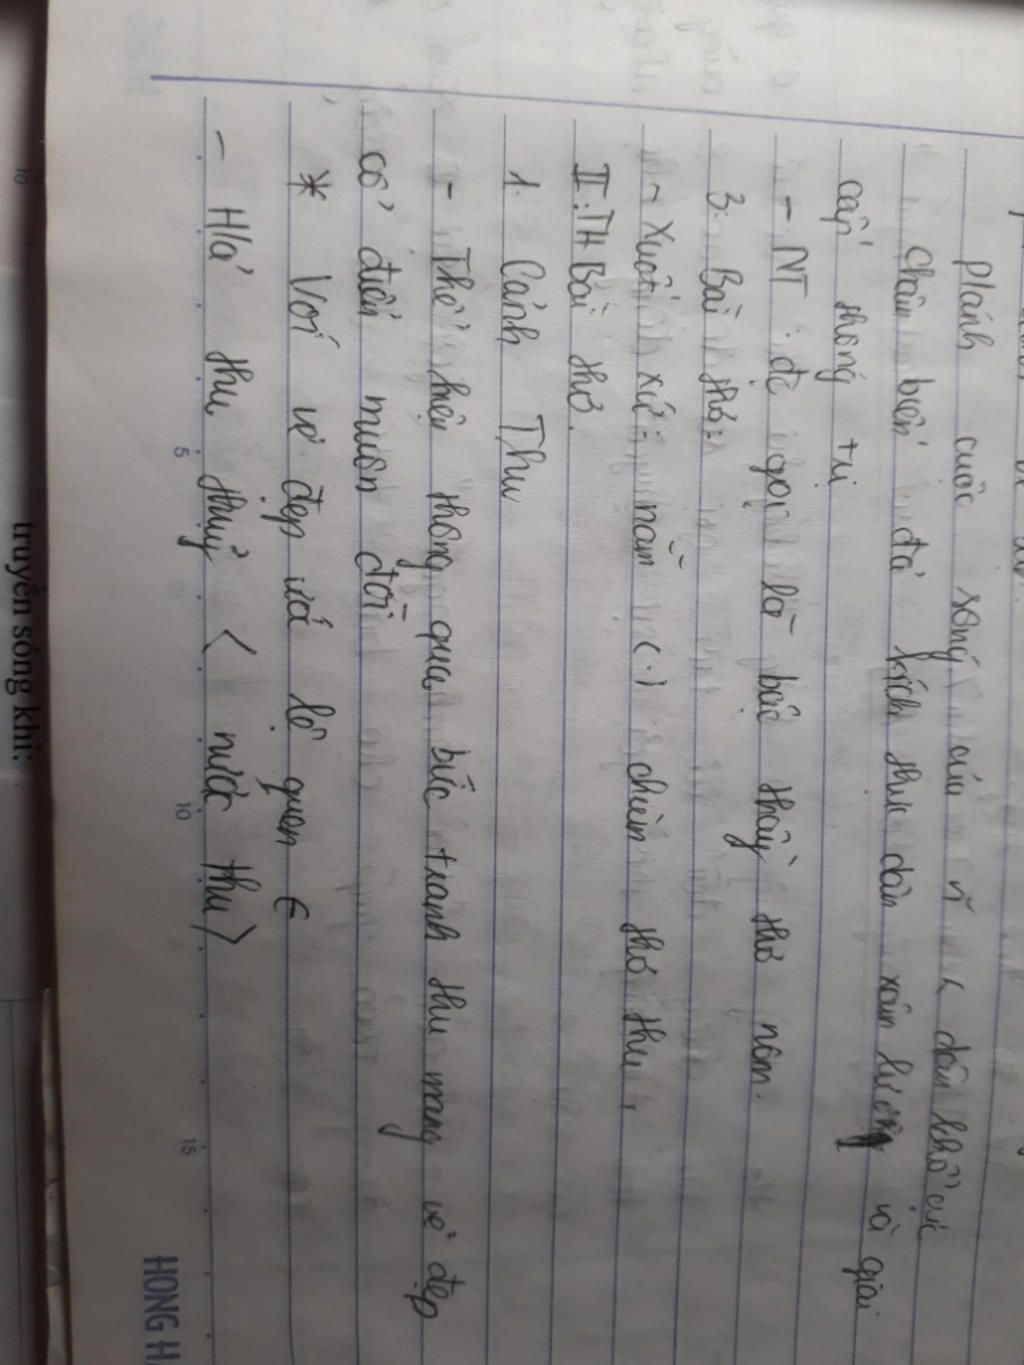 plánh cuộc sống của n~ < dân khổ cực
châm biến đả kích thực dân xâm lược và giai
cấp thống trị
- NT: đc gọi là bậc thầy thơ nôm.
3. Bài thơ:
- Xuất xứ: nằm (.) chùm thơ thu,
II. TH Bài thơ.
1. Cảnh Thu
- Thể hiện thông qua bức tranh thu mang vẻ đẹp
cổ điển muôn đời
* Với vẻ đẹp vơ lệ quen ∈
- H/ả thu thuỷ < nước thu>
5
10
15
HONG H
truyền sóng khi:
10